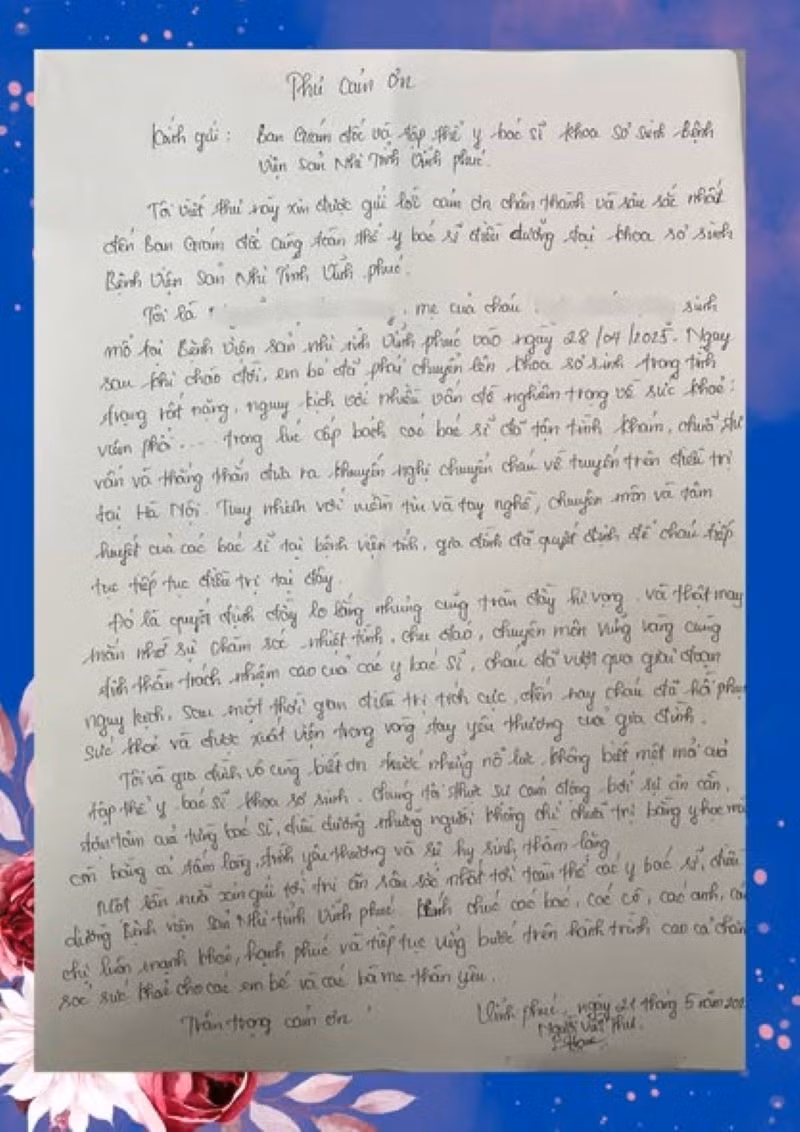 Thư cảm ơn
Kính gửi: Ban Giám đốc và tập thể y bác sĩ khoa sơ sinh Bệnh
Viện Sản Nhi Tỉnh Vĩnh Phúc.
Tôi viết thư này xin được gửi lời cảm ơn chân thành và sâu sắc nhất
đến Ban Giám đốc cùng toàn thể y bác sĩ điều dưỡng tại khoa sơ sinh
Bệnh Viện Sản Nhi Tỉnh Vĩnh Phúc.
Tôi là , mẹ của cháu sinh
mổ tại Bệnh Viện sản nhi tỉnh Vĩnh phúc vào ngày 28/04/2025. Ngay
sau khi chào đời, em bé đã phải chuyển lên khoa sơ sinh trong tình
trạng rất nặng, nguy kịch với nhiều vấn đề nghiêm trọng về sức khoẻ:
viêm phổi... trong lúc cấp bách các bác sĩ đã tận tình khám, tư
vấn và thẳng thắn đưa ra khuyến nghị chuyển cháu về tuyến trên điều trị
tại Hà Nội. Tuy nhiên với niềm tin và tay nghề, chuyên môn và tâm
huyết của các bác sĩ tại bệnh viện tỉnh, gia đình đã quyết định để cháu tiếp
tục tiếp tục điều trị tại đây.
Đó là quyết định đầy lo lắng nhưng cũng tràn đầy hi vọng. và thật may
mắn nhờ sự chăm sóc nhiệt tình, chu đáo, chuyên môn vững vàng cùng
tinh thần trách nhiệm cao của các y bác sĩ, cháu đã vượt qua giai đoạn
nguy kịch, sau một thời gian điều trị tích cực, đến nay cháu đã hồi phục
sức khoẻ và được xuất viện trong vòng tay yêu thương của gia đình.
Tôi và gia đình vô cùng biết ơn trước những nỗ lực không biết mệt mỏi của
tập thể y bác sĩ khoa sơ sinh. Chúng tôi thực sự cảm động bởi sự ân cần,
tận tâm của từng bác sĩ, điều dưỡng những người không chỉ chữa trị bằng y học mà
còn bằng cả tấm lòng, tình yêu thương và sự hy sinh thầm lặng
Một lần nữa xin gửi tới tri ân sâu sắc nhất tới toàn thể các y bác sĩ, điều
dưỡng Bệnh viện Sản Nhi tỉnh Vĩnh phúc. Kính chúc các bác, các cô, các anh, các
chị luôn mạnh khoẻ, hạnh phúc và tiếp tục vững bước trên hành trình cao cả chăm
sóc sức khoẻ cho các em bé và các bà mẹ thân yêu.
Trân trọng cảm ơn!
Vĩnh phúc, ngày 21 tháng 5 năm 202
Người viết thư.